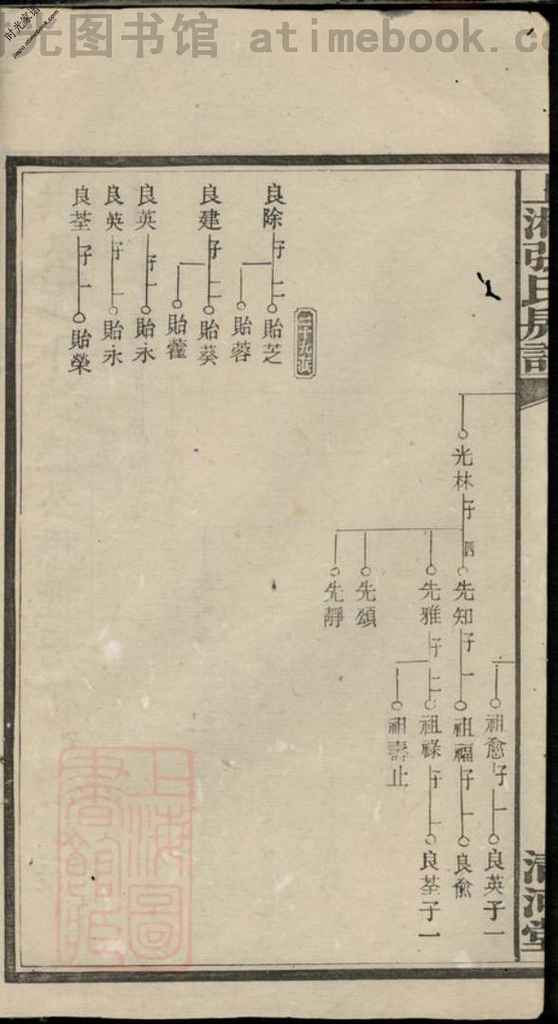 时光图书馆 atimebook.com
上湘張氏房譜
清河堂
祖愈子一
良英子一
光林子四
先知子一
祖福子一
良愈
先雅子二
祖祿子一
良荃子一
祖壽止
先頌
先靜
二十九派
良除子二
貽芝
貽蓉
良建子二
貽葵
貽藿
良英子一
貽永
良英子一
貽永
良荃子一
貽榮
上海圖
書館藏